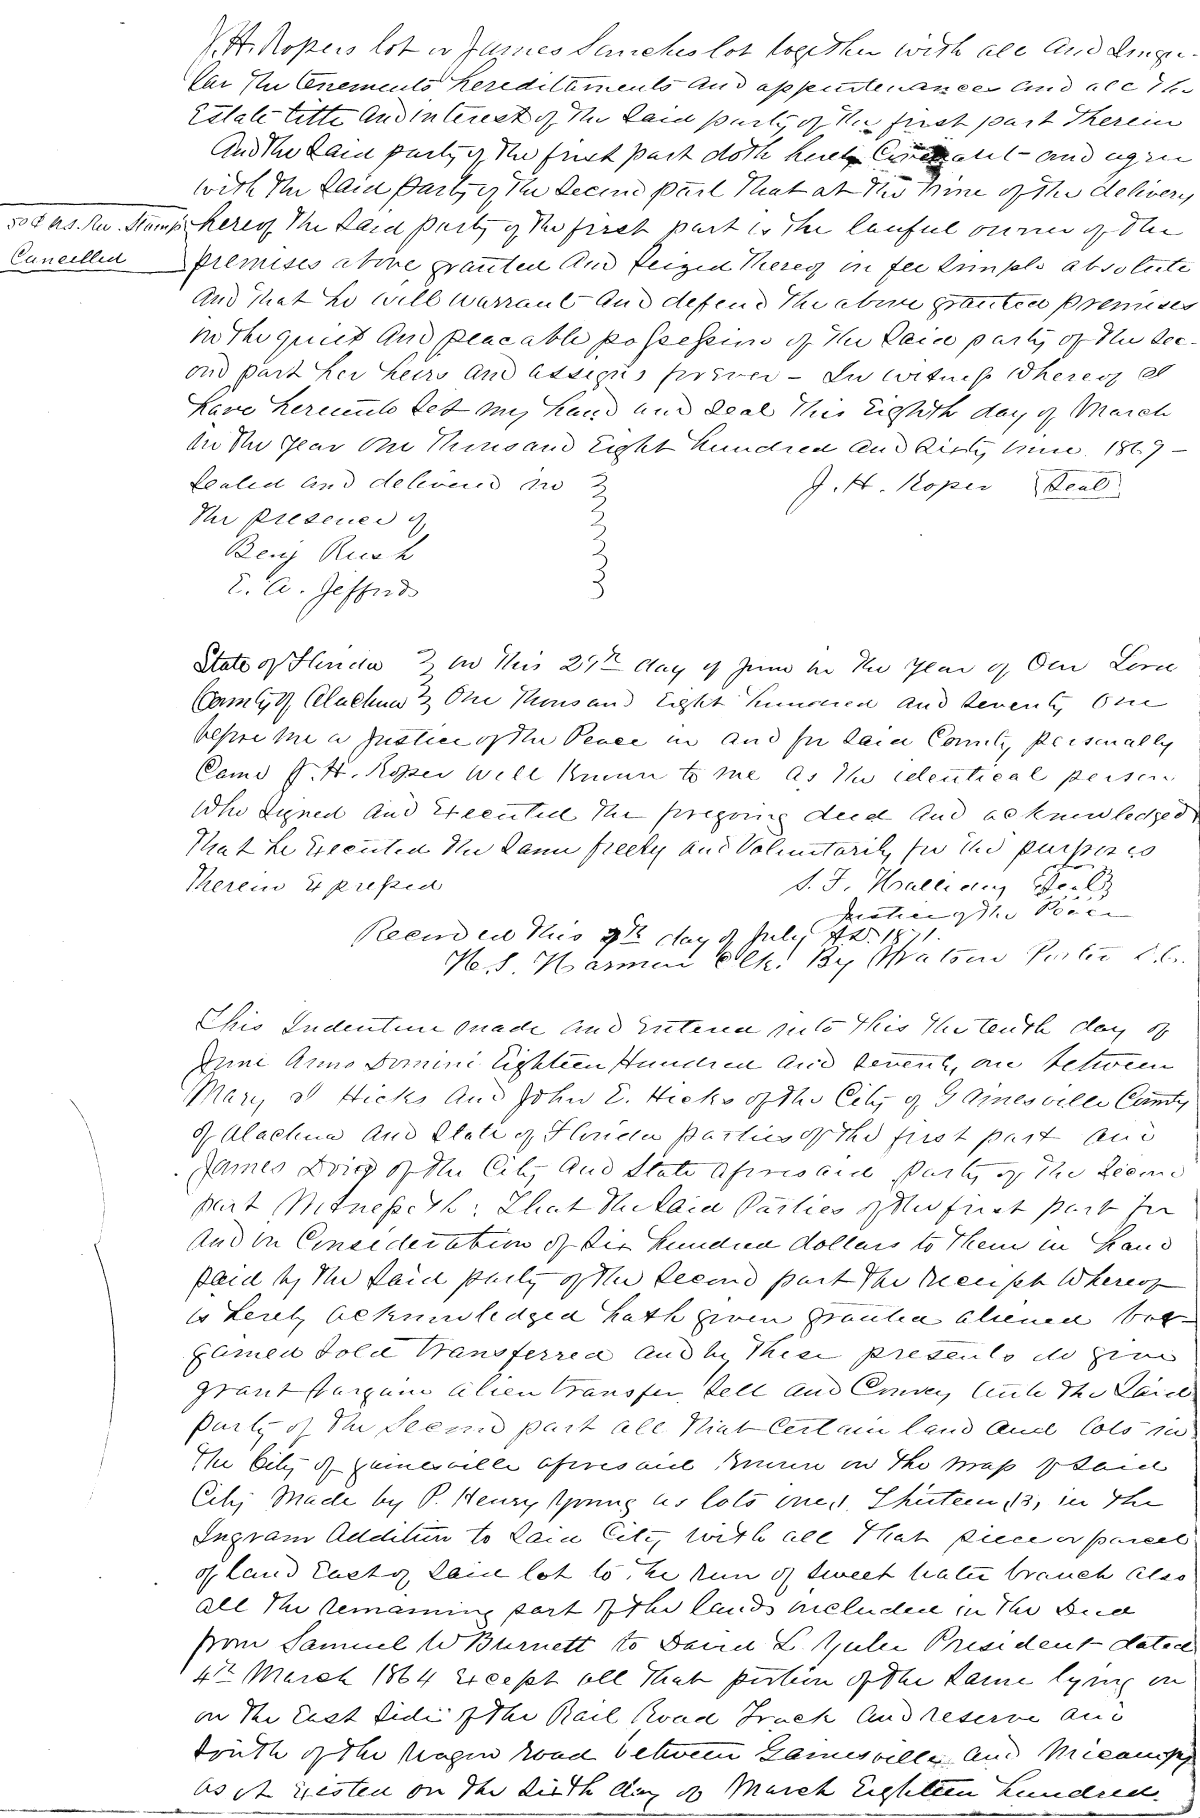 J. H. Ropers lot or James Sanches lot together with all and Singu-
lar the tenements hereditaments and appurtenances and all the
Estate title and interest of the Said party of the first part therein
And the Said party of the first part doth hereby Covenant and agree
with the Said party of the Second part that at the time of the delivery
50¢ U.S. Rev. Stamp
Cancelled
hereof the Said party of the first part is the lawful owner of the
premises above granted and Seized thereof in fee Simple absolute
and that he will warrant and defend the above granted premises
in the quiet and peacable possession of the Said party of the Sec-
ond part her heirs and assigns forever – In witness whereof I
have hereunto Set my hand and Seal this Eighth day of March
in the year One thousand Eight hundred and Sixty nine 1869 –
Sealed and delivered in J. H. Roper Seal
the presence of
Benj Rush
E. A. Jeffords
State of Florida On this 29th day of June in the year of Our Lord
County of Alachua One thousand Eight hundred and Seventy One
before me a Justice of the Peace in and for Said County personally
Came J. H. Roper well known to me as the identical person
who Signed and Executed the foregoing deed and acknowledged
that he Executed the Same freely and Voluntarily for the purposes
therein Expressed S. F. Halliday Seal
Justice of the Peace
Recorded this 7th day of July A.D. 1871.
H. S. Harmon Clk. By Watson Porter D.C.
This Indenture made and Entered into this the tenth day of
June Anno Domini Eighteen Hundred and Seventy one between
Mary I Hicks and John E. Hicks of the City of Gainesville County
of Alachua and State of Florida parties of the first part and
James Doig of the City and State aforesaid party of the Second
part Witnesseth: That the Said Parties of the first part for
and in Consideration of Six hundred dollars to them in hand
paid by the Said party of the Second part the receipt whereof
is hereby acknowledged hath given granted aliened bar-
gained Sold transferred and by these presents do give
grant bargain alien transfer Sell and Convey unto the Said
party of the Second part all that Certain land and lots in
the City of Gainesville aforesaid Known on the map of Said
City made by P. Henry Young as lots one 1. Thirteen 13, in the
Ingram Addition to Said City with all that piece or parcel
of land East of Said lot to the run of Sweet Water branch also
all the remaining part of the lands included in the Deed
from Samuel W Burnett to David L. Yulee President dated
4th March 1864 Except all that portion of the Same lying on
on the East Side of the Rail Road Track and reserve and
South of the Wagon road between Gainesville and Micanopy
as it Existed on the Sixth day of March Eighteen hundred